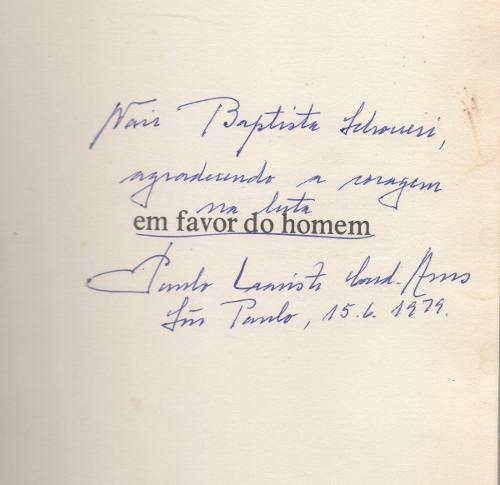 Nair Baptista Schoueri,
agradecendo a coragem
na luta
em favor do homem
Paulo Evaristo Card. Arns
São Paulo, 15.6.1979.